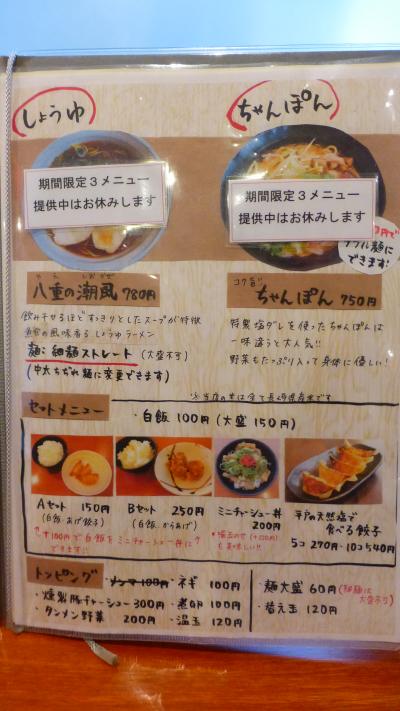 しょうゆ
ちゃんぽん
期間限定3メニュー
提供中はお休みします
期間限定3メニュー
提供中はお休みします
できます!
八重の潮風 780円
飲みほせるほどすっきりとしたスープが特徴
魚貝の風味香る しょうゆラーメン
麺:細麺ストレート (大盛不可)
(中太ちぢれ麺に変更できます)
ちゃんぽん 750円
特製塩ダレを使ったちゃんぽんは
一味違うと大人気!!
野菜もたっぷり入って身体に優しい!
※当店の米は全て長崎県産米です
セットメニュー
・白飯 100円 (大盛 150円)
Aセット 150円
(白飯・あげ餃子)
Bセット 250円
(白飯・からあげ)
ミニチャーシュー丼
200円
平戸の天然塩で
食べる餃子
5コ 270円・10コ 540円
+100円で白飯をミニチャーシュー丼に
できます!!
・温玉のせ(+100円)
も美味しい!!
トッピング
・メンマ 100円
・ネギ 100円
・燻製豚チャーシュー 300円
・煮卵 100円
・タンメン野菜 200円
・温玉 120円
・麺大盛 60円 (細麺は
大盛不可)
・替え玉 120円